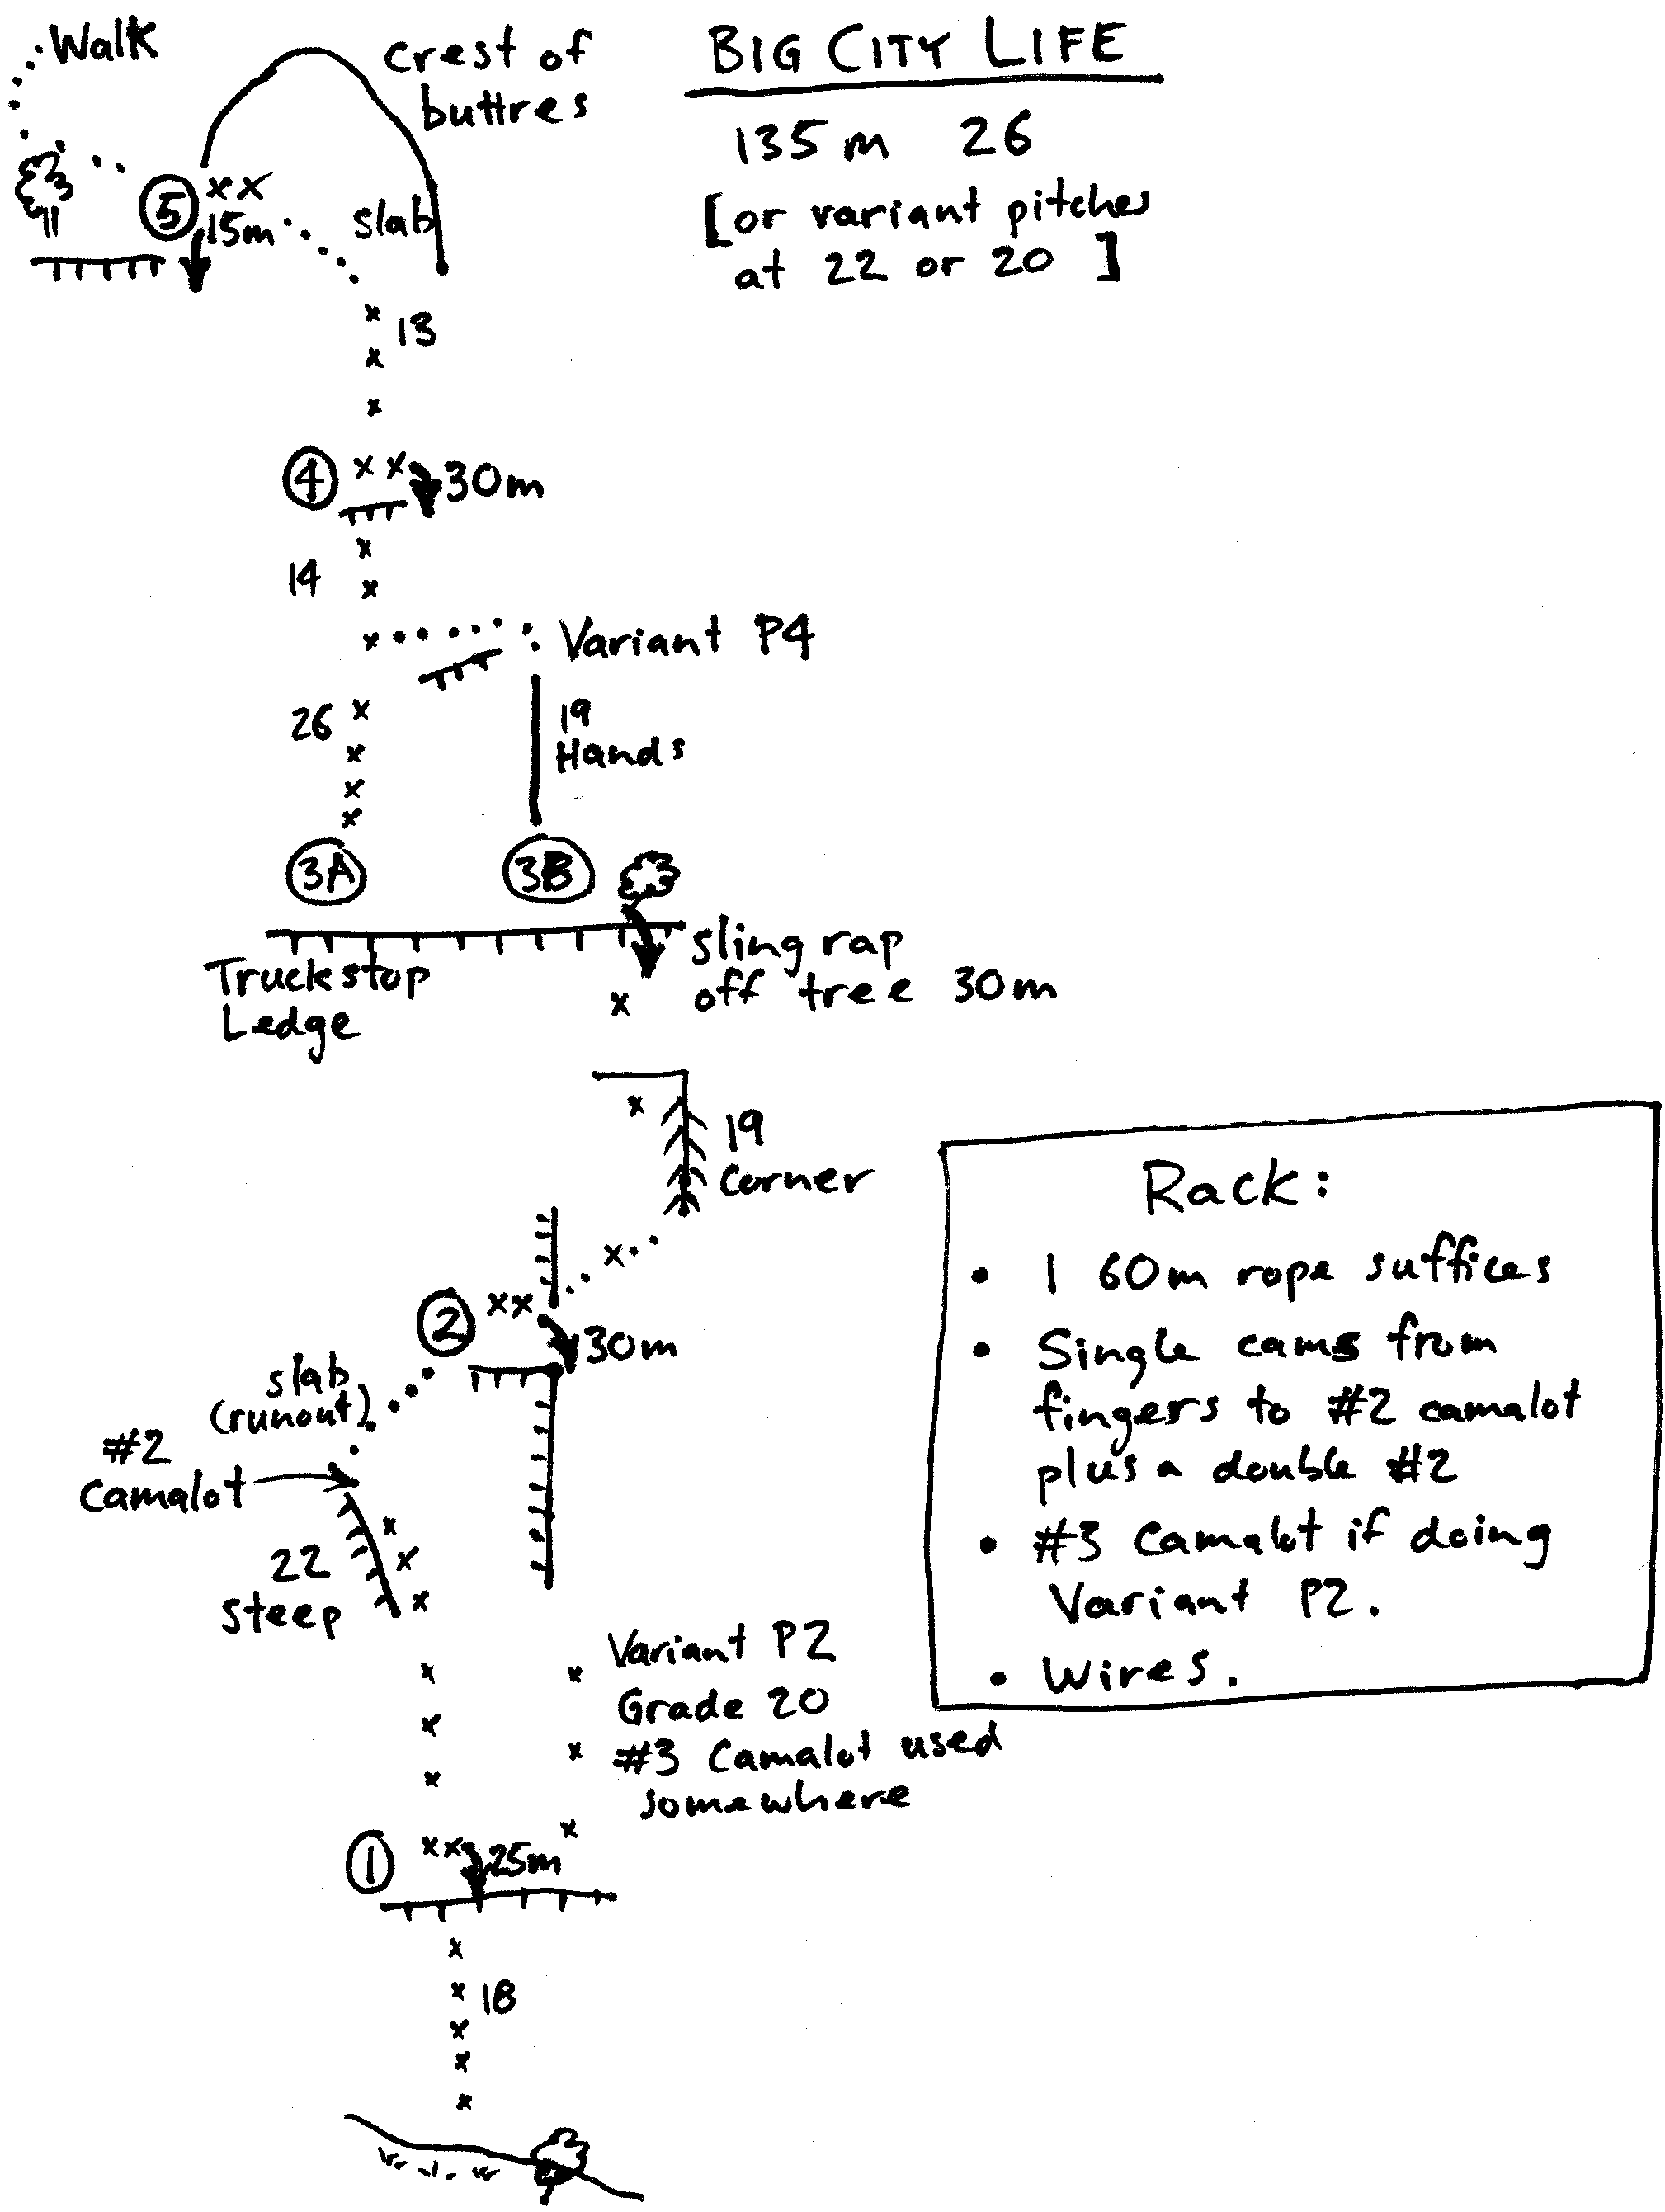 BIG CITY LIFE
135m 26
[or variant pitches
at 22 or 20]
Walk
crest of
buttres
5
xx
15m
slab
13
4
xx
30m
14
Variant P4
26
19
Hands
3A
3B
Truckstop
Ledge
sling rap
off tree 30m
19
Corner
2
xx
30m
slab
(runout)
#2
Camalot
22
steep
Variant P2
Grade 20
#3 Camalot used
somewhere
1
xx
25m
18
Rack:
• 1 60m rope suffices
• Single cams from
fingers to #2 camalot
plus a double #2
• #3 Camalot if doing
Variant P2.
• Wires.